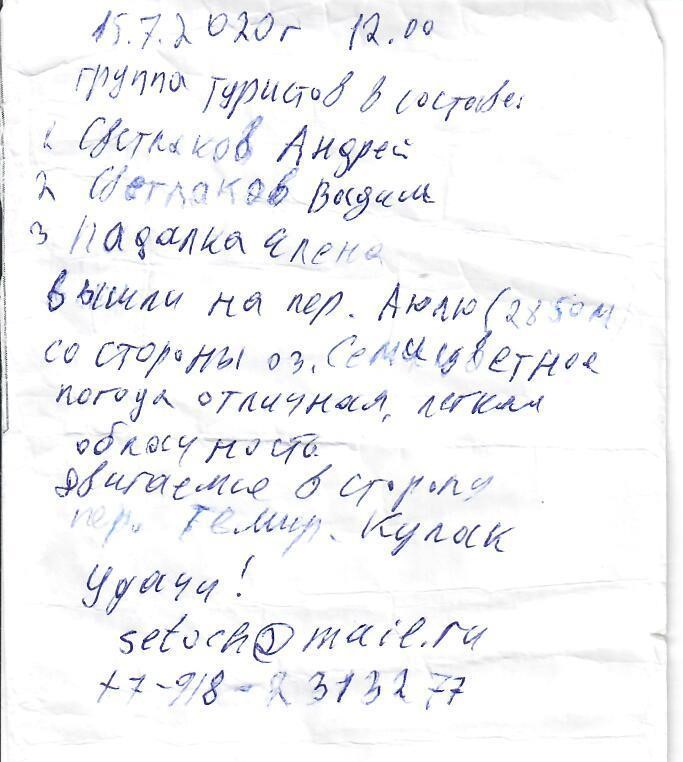 15.7.2020г 12.00
группа туристов в составе:
1 Светлаков Андрей
2 Светлаков Вадим
3 Падалка Алена
вышли на пер. Аюлю (2850м)
со стороны оз. Семицветное
погода отличная, легкая
облачность
двигаемся в сторону
пер. Темир. Кулак
Удачи!
setoch@mail.ru
+7-918-2313277